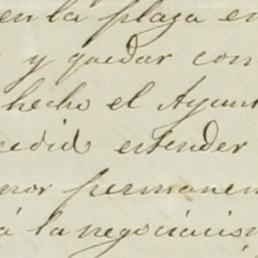 en la plaza en
y quedar con
hecho el Ayunt
cedió estender
por permanen
á la negociación